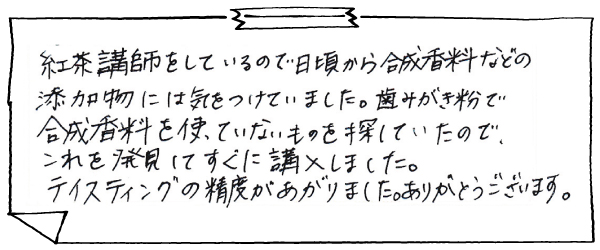 紅茶講師をしているので日頃から合成香料などの
添加物には気をつけていました。歯みがき粉で
合成香料を使っていないものを探していたので、
これを発見してすぐに講入しました。
テイスティングの精度があがりました。ありがとうございます。